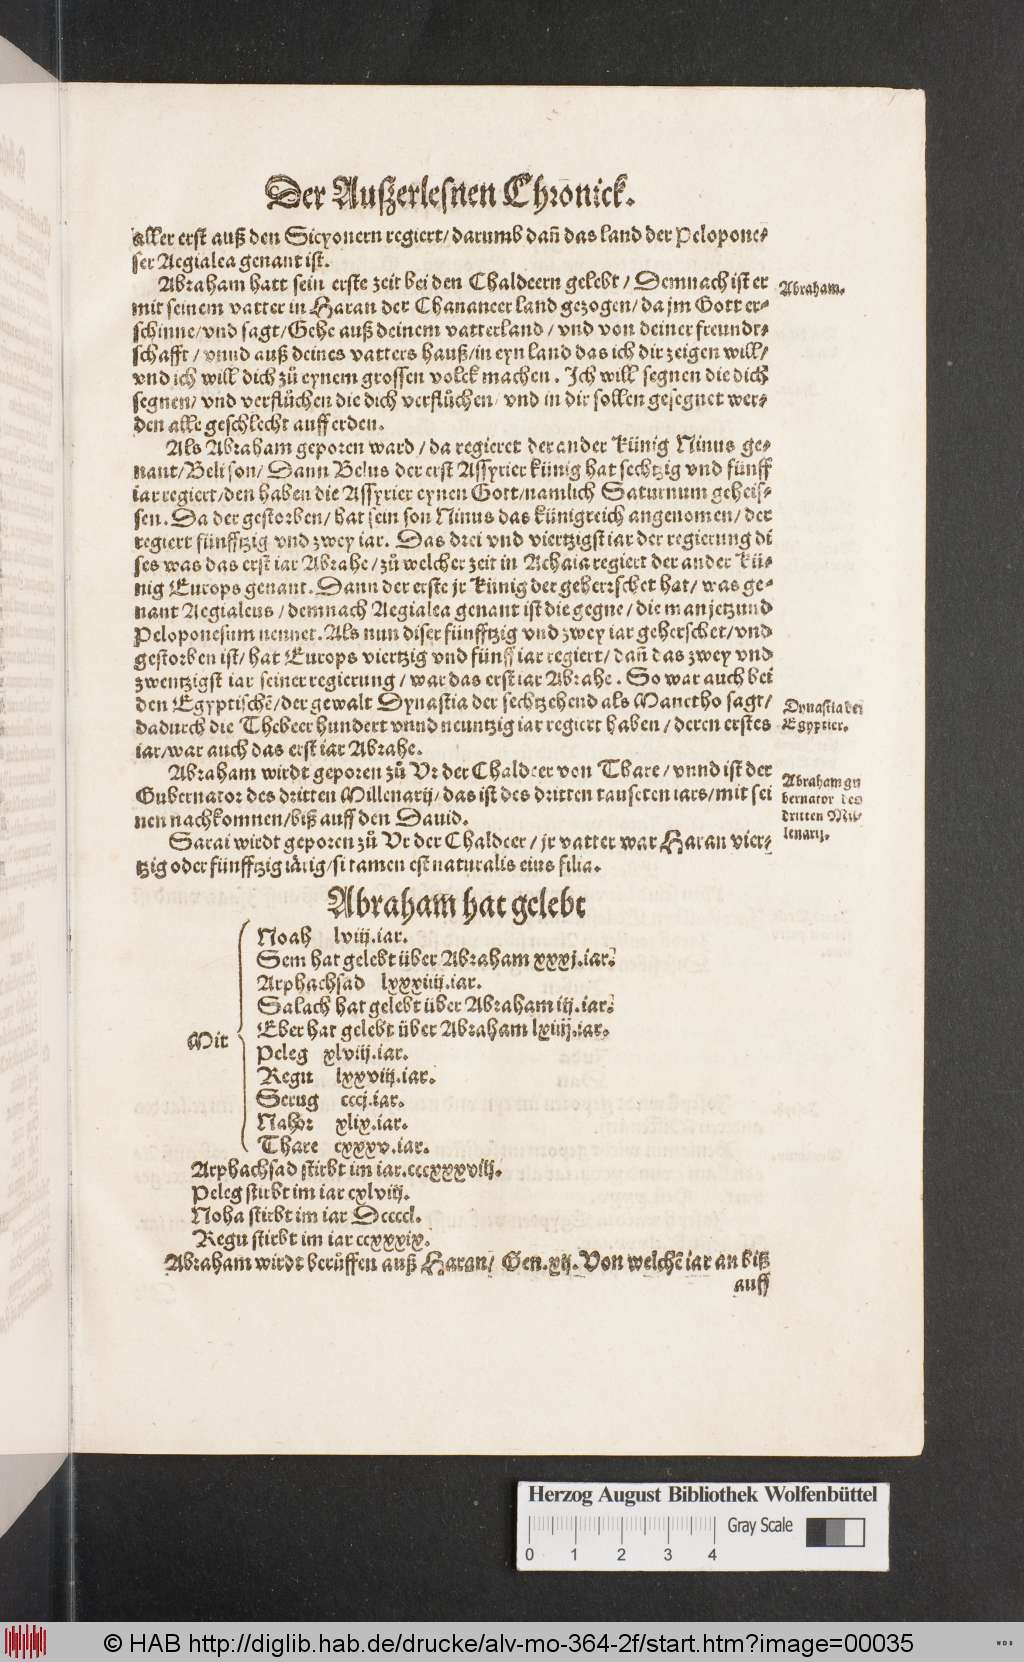 Der Außerlesnen Chronick.
aller erst auß den Sicyonern regiert/ darumb dañ das land der Pelopone-
ser Aegialea genant ist.
Abraham hatt sein erste zeit bei den Chaldeern gelebt / Demnach ist er
Abraham.
mit seinem vatter in Haran der Chananeer land gezogen/ da jm Gott er-
schinne/vnd sagt/Gehe auß deinem vatterland / vnd von deiner freundt-
schafft / vnnd auß deines vatters hauß/in eyn land das ich dir zeigen will/
vnd ich will dich zů eynem grossen volck machen. Ich will segnen die dich
segnen/ vnd verflůchen die dich verflůchen/ vnd in dir sollen gesegnet wer-
den alle geschlecht auff erden.
Als Abraham geporen ward / da regieret der ander Künig Ninus ge-
nant/Beli son/ Dann Belus der erst Assyrier künig hat sechtzig vnd fünff
iar regiert/den haben die Assyrier eynen Gott/namlich Saturnum geheis-
sen. Da der gestorben/ hat sein son Ninus das künigreich angenomen/ der
regiert fünfftzig vnd zwey iar. Das drei vnd viertzigst iar der regierung di
ses was das erst iar Abrahe/ zů welcher zeit in Achaia regiert der ander Kü-
nig Europs genant. Dann der erste jr Künig der geherrschet hat/ was ge-
nant Aegialeus / demnach Aegialea genant ist die gegne/ die man jetzund
Peloponesum nennet. Als nun diser fünfftzig vnd zwey iar geherschet/vnd
gestorben ist/ hat Europs viertzig vnd fünff iar regiert/ dañ das zwey vnd
zwentzigst iar seiner regierung / war das erst iar Abrahe. So war auch bei
den Egyptischẽ/der gewalt Dynastia der sechtzehend als Manetho sagt/
Dynastia der
dadurch die Thebeer hundert vnnd neuntzig iar regiert haben / deren erstes
Egyptier.
iar/war auch das erst iar Abrahe.
Abraham wirdt geporen zů Vr der Chaldeer von Thare / vnnd ist der
Abraham gu
Gubernator des dritten Millenarij/ das ist des dritten tauseten iars/mit sei
bernator des
nen nachkomnen/biß auff den Dauid.
dritten Mil-
lenarij.
Sarai wirdt geporen zů Vr der Chaldeer / jr vatter war Haran vier-
tzig oder fünfftzig iårig/si tamen est naturalis eius filia.
Abraham hat gelebt
Mit
Noah lviij.iar.
Sem hat gelebt über Abraham xxxj.iar.
Arphachsad lxxxiiij.iar.
Salach hat gelebt über Abraham iij.iar.
Eber hat gelebt über Abraham lxiiij.iar.
Peleg xlviij.iar.
Regu lxxviij.iar.
Serug cccj.iar.
Nahor xlix.iar.
Thare cxxxv.iar.
Arphachsad stirbt im iar.cccxxxviij.
Peleg stirbt im iar cxlviij.
Noha stirbt im iar Dccccl.
Regu stirbt im iar ccxxxix.
Abraham wirdt berůffen auß Haran/ Gen.xij. Von welchẽ iar an biß
auff
Herzog August Bibliothek Wolfenbüttel
Gray Scale
0 1 2 3 4
© HAB http://diglib.hab.de/drucke/alv-mo-364-2f/start.htm?image=00035